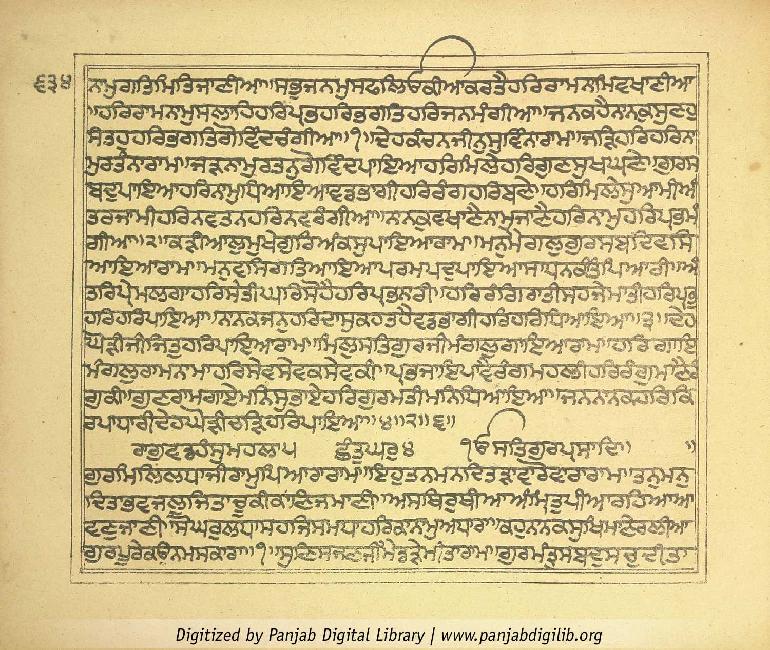 ੬੩੪
ਨਾਮੁਗਤਿਮਿਤਿਜਾਣੀਆ॥ਸਭੁਜਨਮੁਸਫਲਿਓਕੀਆਕਰਤੈਹਰਿਰਾਮਨਾਮਿਵਖਾਣੀਆ
॥ਹਰਿਰਾਮਨਾਮੁਸਲਾਹਿਹਰਿਪ੍ਰਭਹਰਿਭਗਤਿਹਰਿਜਨਮੰਗੀਆ॥ਜਨੁਕਹੈਨਾਨਕੁਸੁਣਹੁ
ਸੰਤਹੁਹਰਿਭਗਤਿਗੋਵਿੰਦਚੰਗੀਆ॥੧॥ਦੇਹਕੰਚਨਜੀਨੁਸੁਵਿਨਾਰਾਮ॥ਜੜਿਹਰਿਹਰਿਨਾ
ਮੁਰਤੰਨਾਰਾਮ॥ਜੜਿਨਾਮਰਤਨੁਗੋਵਿੰਦਪਾਇਆਹਰਿਮਿਲੇਹਰਿਗੁਣਸੁਖਘਣੇ॥ਗੁਰਸ
ਬਦੁਪਾਇਆਹਰਿਨਾਮੁਧਿਆਇਆਵਡਭਾਗੀਹਰਿਰੰਗਹਰਿਬਣੇ॥ਹਰਿਮਿਲੇਸੁਆਮੀਅੰ
ਤਰਜਾਮੀਹਰਿਨਵਤਨਹਰਿਨਵਰੰਗੀਆ॥ਨਾਨਕੁਵਖਾਣੈਨਾਮੁਜਾਣੈਹਰਿਨਾਮੁਹਰਿਪ੍ਰਭਮੰ
ਗੀਆ॥੨॥ਕੜੀਆਲੁਮੁਖੇਗੁਰਿਅੰਕਸੁਪਾਇਆਰਾਮ॥ਮਨੁਮੈਗਲੁਗੁਰਸਬਦਿਵਸਿ
ਆਇਆਰਾਮ॥ਮਨੁਵਸਗਤਿਆਇਆਪਰਮਪਦੁਪਾਇਆਸਾਧਨਕੰਤਿਪਿਆਰੀ॥ਅੰ
ਤਰਿਪ੍ਰੇਮੁਲਗਾਹਰਿਸੇਤੀਘਰਿਸੋਹੈਹਰਿਪ੍ਰਭਨਾਰੀ॥ਹਰਿਰੰਗਿਰਾਤੀਸਹਜੇਮਾਤੀਹਰਿਪ੍ਰਭੁ
ਹਰਿਹਰਿਪਾਇਆ॥ਨਾਨਕਜਨੁਹਰਿਦਾਸੁਕਹਤਹੈਵਡਭਾਗੀਹਰਿਹਰਿਧਿਆਇਆ॥੩॥ਦੇਹ
ਘੋੜੀਜੀਜਿਤੁਹਰਿਪਾਇਆਰਾਮ॥ਮਿਲਿਸਤਿਗੁਰਜੀਮੰਗਲੁਗਾਇਆਰਾਮ॥ਹਰਿਗਾਇ
ਮੰਗਲੁਰਾਮਨਾਮਾਹਰਿਸੇਵਸੇਵਕਸੇਵਕੀ॥ਪ੍ਰਭਜਾਇਪਾਵੈਰੰਗਮਹਲੀਹਰਿਰੰਗੁਮਾਣੈਰੰ
ਗਕੀ॥ਗੁਣਰਾਮਗਾਏਮਨਿਸੁਭਾਏਹਰਿਗੁਰਮਤੀਮਨਿਧਿਆਇਆ॥ਜਨਨਾਨਕਹਰਿਕਿ
ਰਪਾਧਾਰੀਦੇਹਘੋੜੀਚੜਿਹਰਿਪਾਇਆ॥੪॥੨॥੬॥
ਰਾਗੁਵਡਹੰਸੁਮਹਲਾ੫ ਛੰਤੁਘਰੁ੪ ੴਸਤਿਗੁਰਪ੍ਰਸਾਦਿ॥ ॥
ਗੁਰਮਿਲਿਲਧਾਜੀਰਾਮੁਪਿਆਰਾਰਾਮ॥ਇਹੁਤਨਮਨਦਿਤੜਾਵਾਰੋਵਾਰਾਰਾਮ॥ਤਨੁਮਨੁ
ਦਿਤਾਭਵਜਲੁਜਿਤਾਚੂਕੀਕਾਂਣਿਜਮਾਣੀ॥ਅਸਥਿਰੁਥੀਆਅੰਮ੍ਰਿਤੁਪੀਆਰਹਿਆਆ
ਵਣੁਜਾਣੀ॥ਸੋਘਰੁਲਧਾਸਹਜਿਸਮਧਾਹਰਿਕਾਨਾਮੁਅਧਾਰਾ॥ਕਹੁਨਾਨਕਸੁਖਿਮਾਣੇਰਲੀਆ
ਗੁਰਪੂਰੇਕੰਉਨਮਸਕਾਰਾ॥੧॥ਸੁਣਿਸਜਣਜੀਮੈਡੜੇਮੀਤਾਰਾਮ॥ਗੁਰਮੰਤ੍ਰੁਸਬਦੁਸਚੁਦੀਤਾ
Digitized by Panjab Digital Library | www.panjabdigilib.org